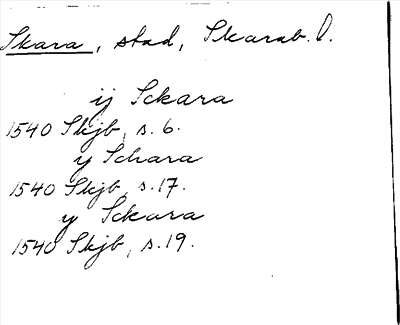 Skara, stad, Skarab. l.
ij Sckara
1540 Skjb, s. 6.
y Schara
1540 Skjb, s. 17.
y Sckara
1540 Skjb, s. 19.